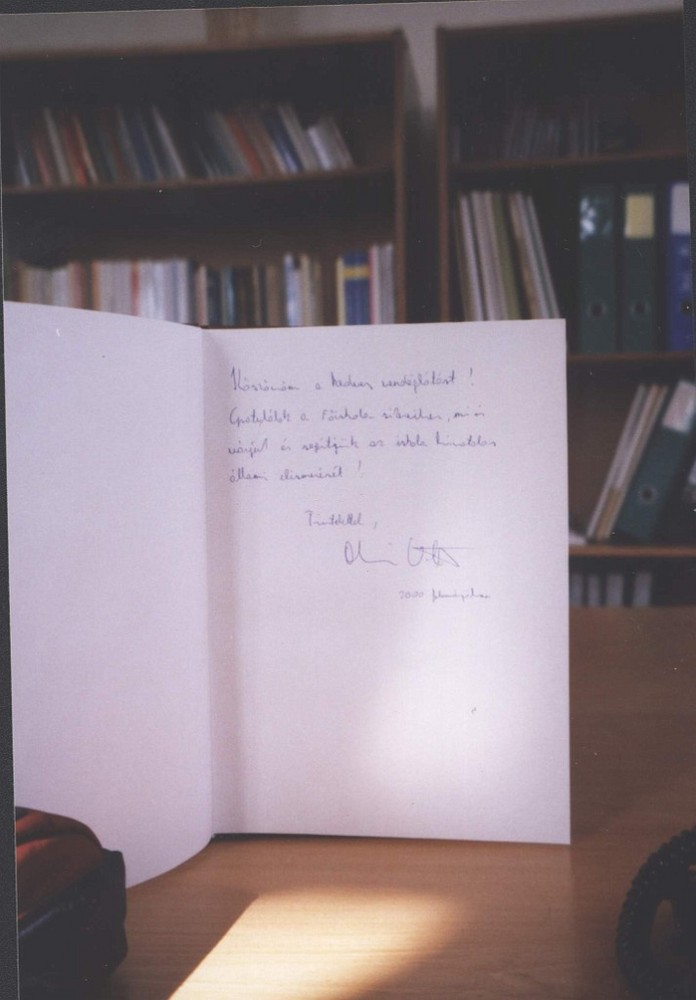 Köszönöm a kedves vendéglátást !
Gratulálok a Főiskola sikereihez, mi is
várjuk és segítjük az iskola hivatalos
állami elismerését !
Tisztelettel,
2000 februárjában